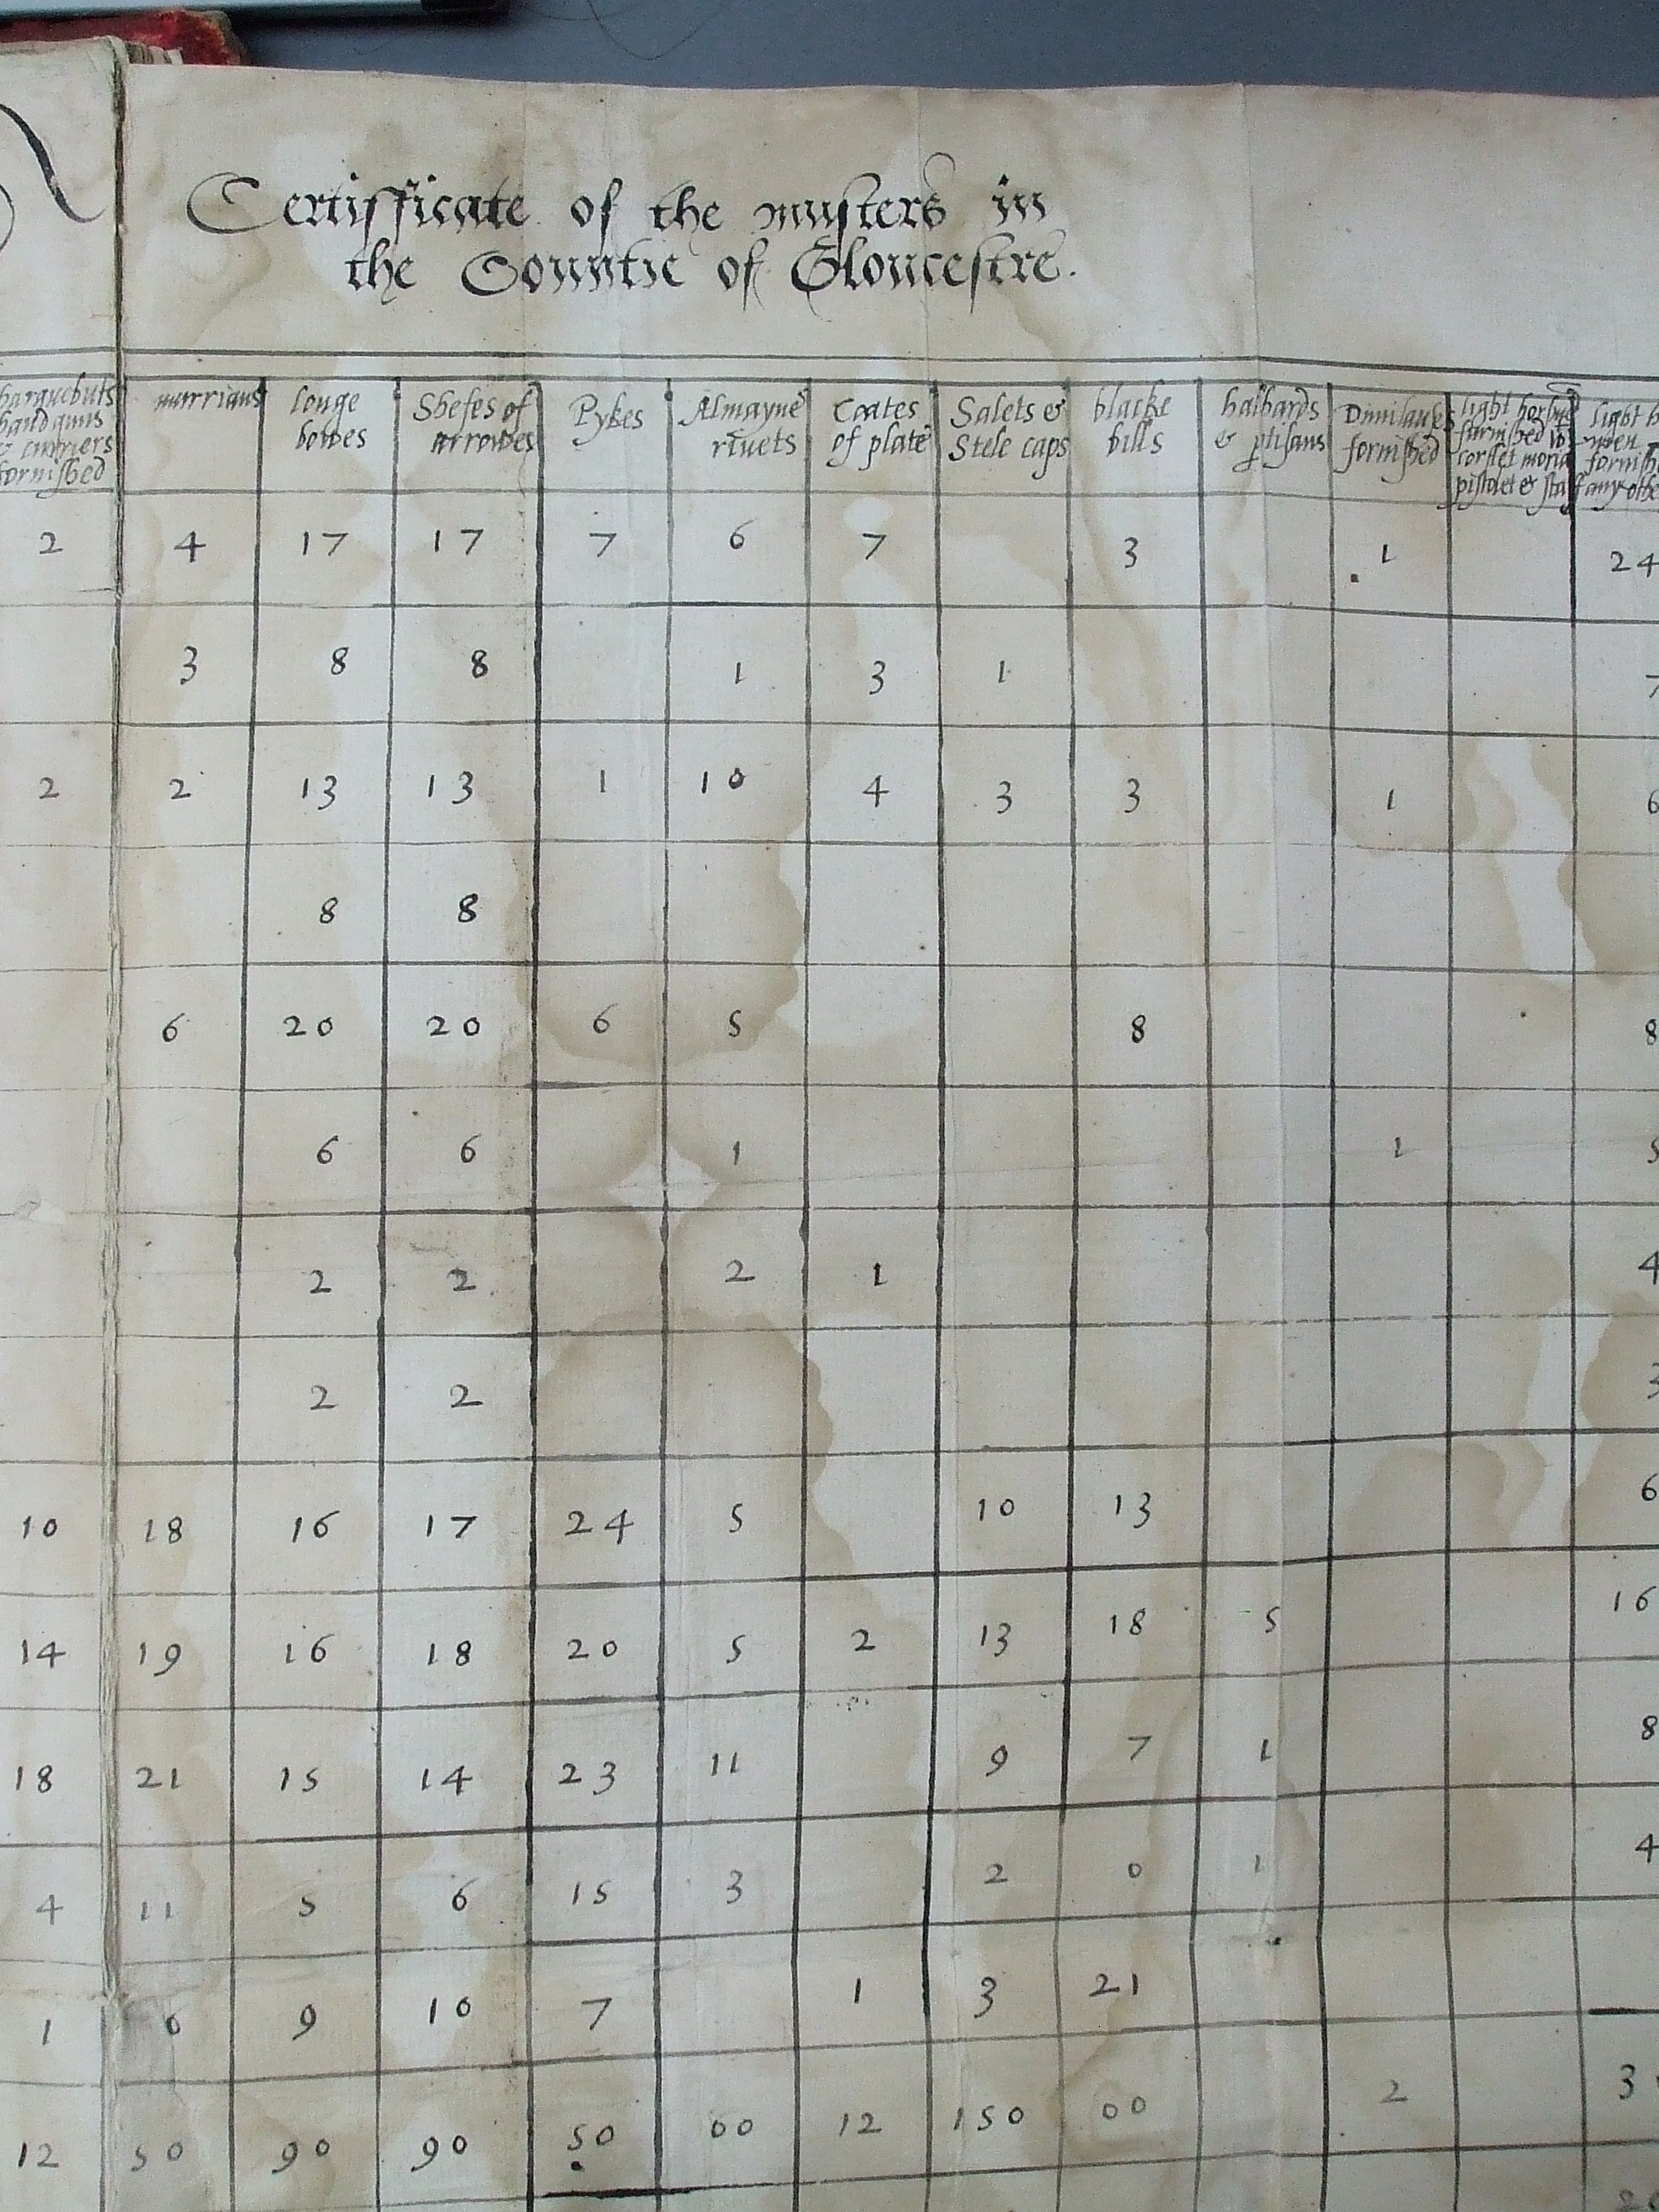 Certifficate of the musters in
the Countie of Gloucestre.
harquebuts hand guns & curriers fornished | murrians | longe bowes | Shefes of arrowes | Pykes | Almayne rivets | Coates of plate | Salets & Stele caps | blacke bills | halbards & ptisans | Dimilaunces fornished | light horsmen furnished wt corslet morian pistolet & staf | light h men fornishe any othe
2 4 17 17 7 6 7 3 1 24
3 8 8 1 3 1 7
2 2 13 13 1 10 4 3 3 1 6
8 8
6 20 20 6 5 8 8
6 6 1 1 5
2 2 2 1 4
2 2 3
10 18 16 17 24 5 10 13 6
14 19 16 18 20 5 2 13 18 5 16
18 21 15 14 23 11 9 7 1 8
4 11 5 6 15 3 2 0 1 4
1 6 9 10 7 1 3 21
12 50 90 90 50 00 12 150 00 2 3